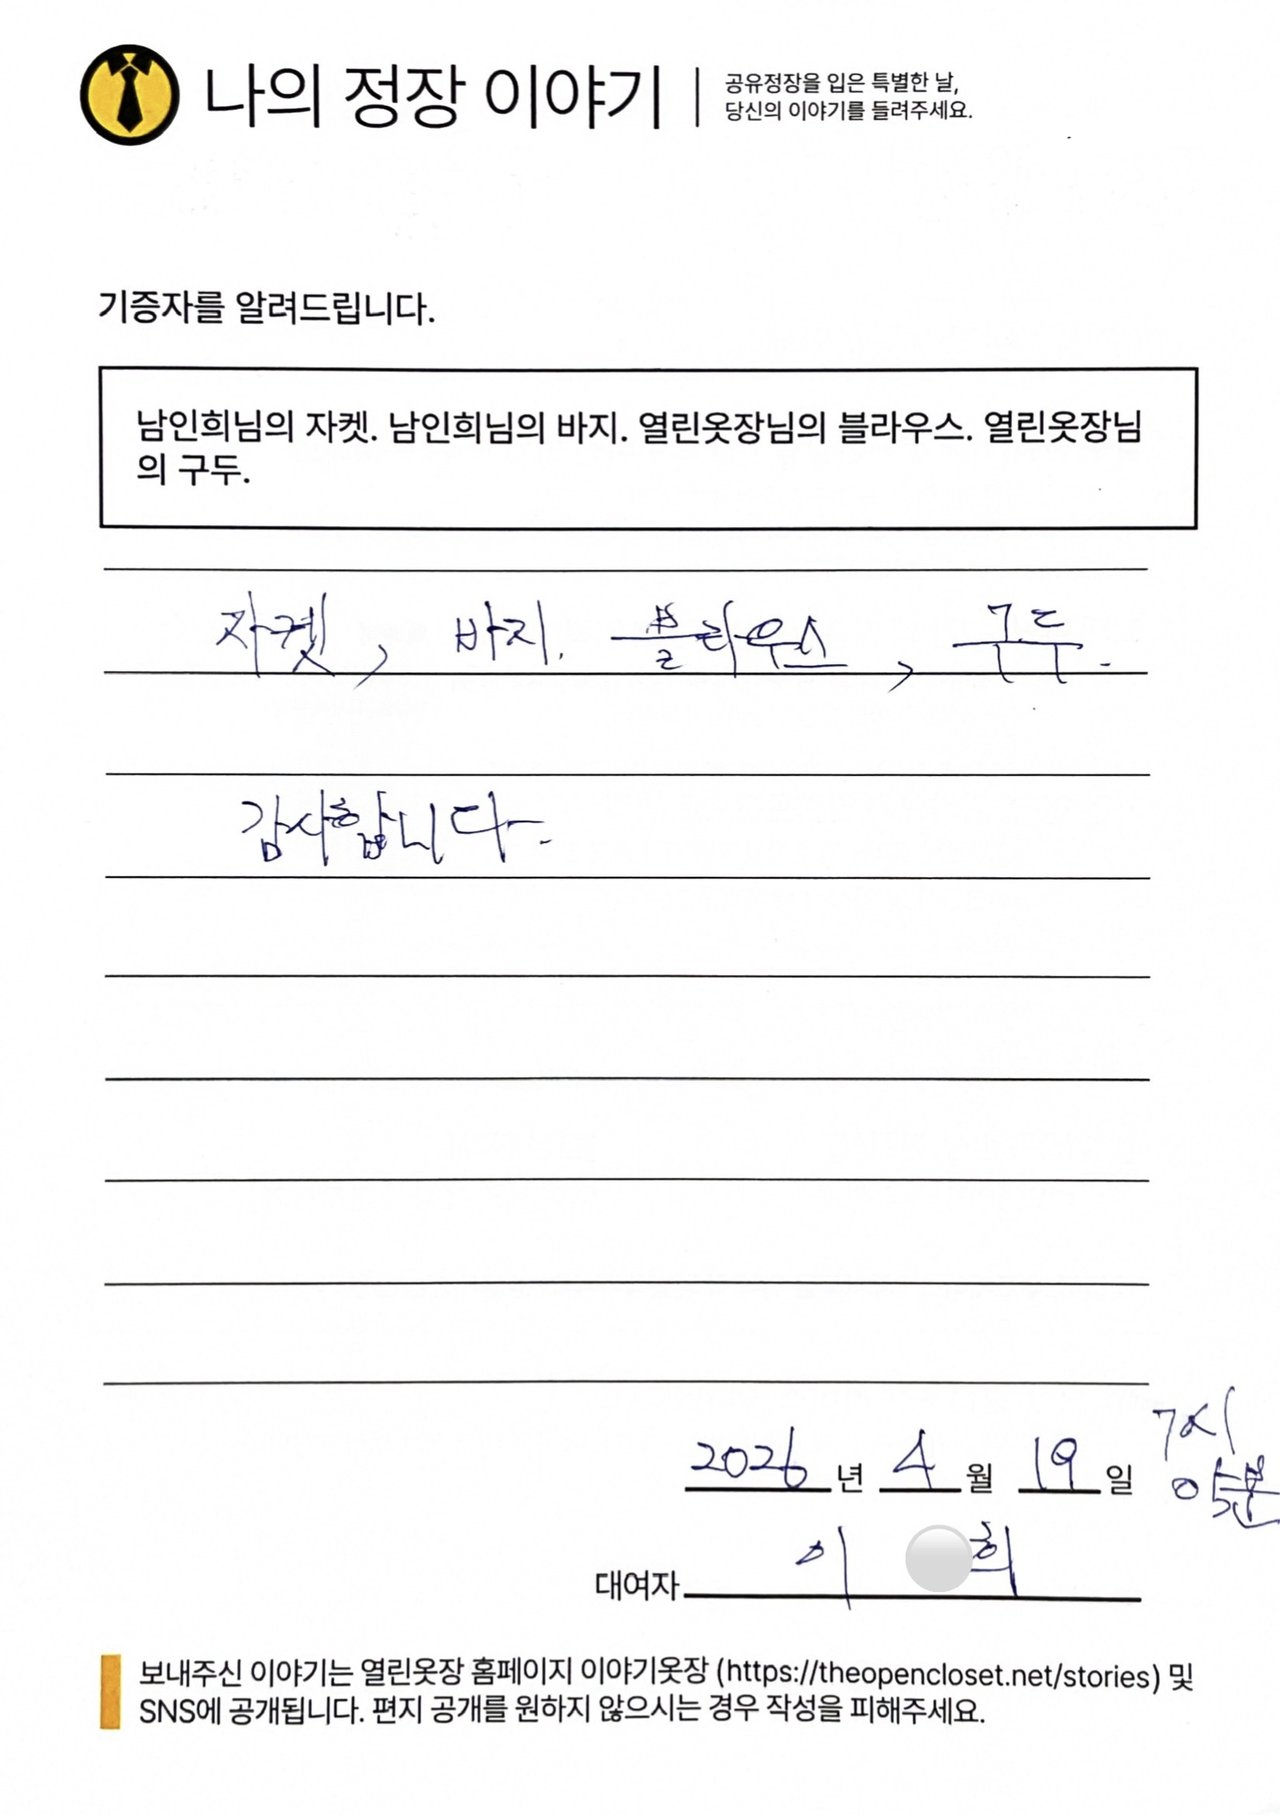 나의 정장 이야기
공유정장을 입은 특별한 날,
당신의 이야기를 들려주세요.
기증자를 알려드립니다.
남인희님의 자켓. 남인희님의 바지. 열린옷장님의 블라우스. 열린옷장님
의 구두.
자켓, 바지. 블라우스, 구두.
감사합니다.
7시
2026년 4월 19일
대여자 이 희
보내주신 이야기는 열린옷장 홈페이지 이야기옷장 (https://theopencloset.net/stories) 및
SNS에 공개됩니다. 편지 공개를 원하지 않으시는 경우 작성을 피해주세요.